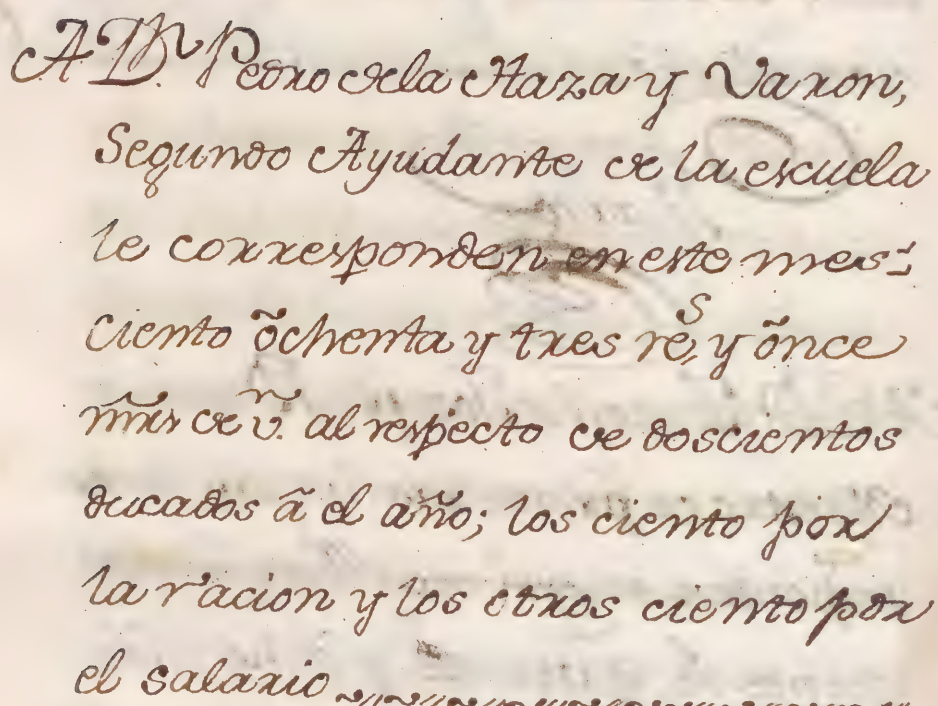 A Dn. Pedro de la Haza y Varon,
Segundo Ayudante de la escuela
le corresponden en este mes
ciento õchenta y tres res, y õnce
mrs de vn. al respecto de doscientos
ducados ã el año; los ciento por
la racion y los otros ciento por
el salario